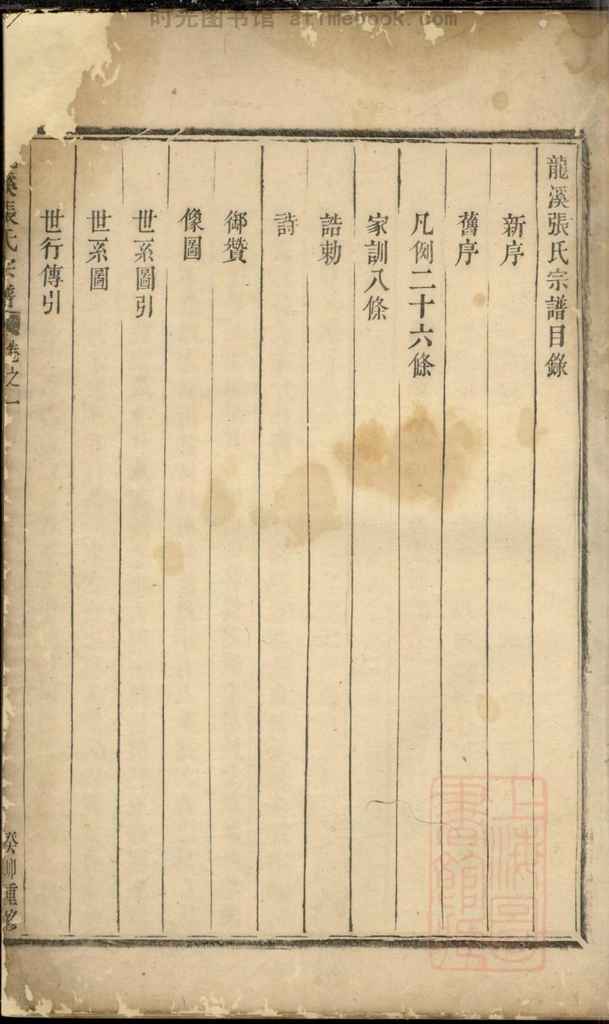 时光图书馆 atimebook.com
龍溪張氏宗譜目錄
新序
舊序
凡例二十六條
家訓八條
誥勅
詩
御贊
像圖
世系圖引
世系圖
世行傳引
溪張氏宗譜 卷之一
癸卯重修
上海圖書館藏